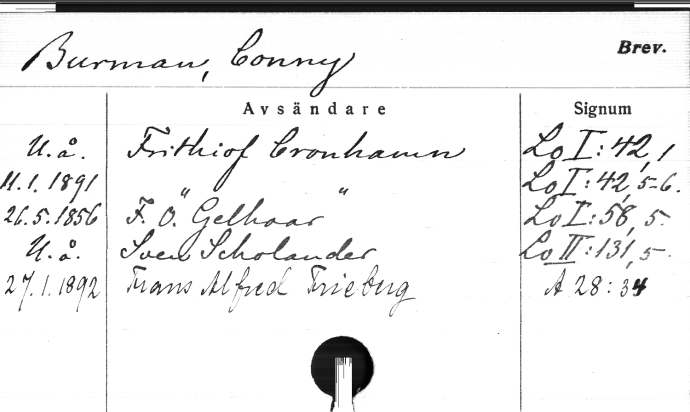 Burman, Conny
Brev.
Avsändare Signum
U.å. Frithiof Cronhamn Lo I:42,1
11.1.1891 " " Lo I:42,5-6.
26.5.1856 F. Ö. Gelhaar Lo I:58,5.
U.å. Sven Scholander Lo II:131,5.
27.1.1892 Frans Alfred Frieberg A 28:34